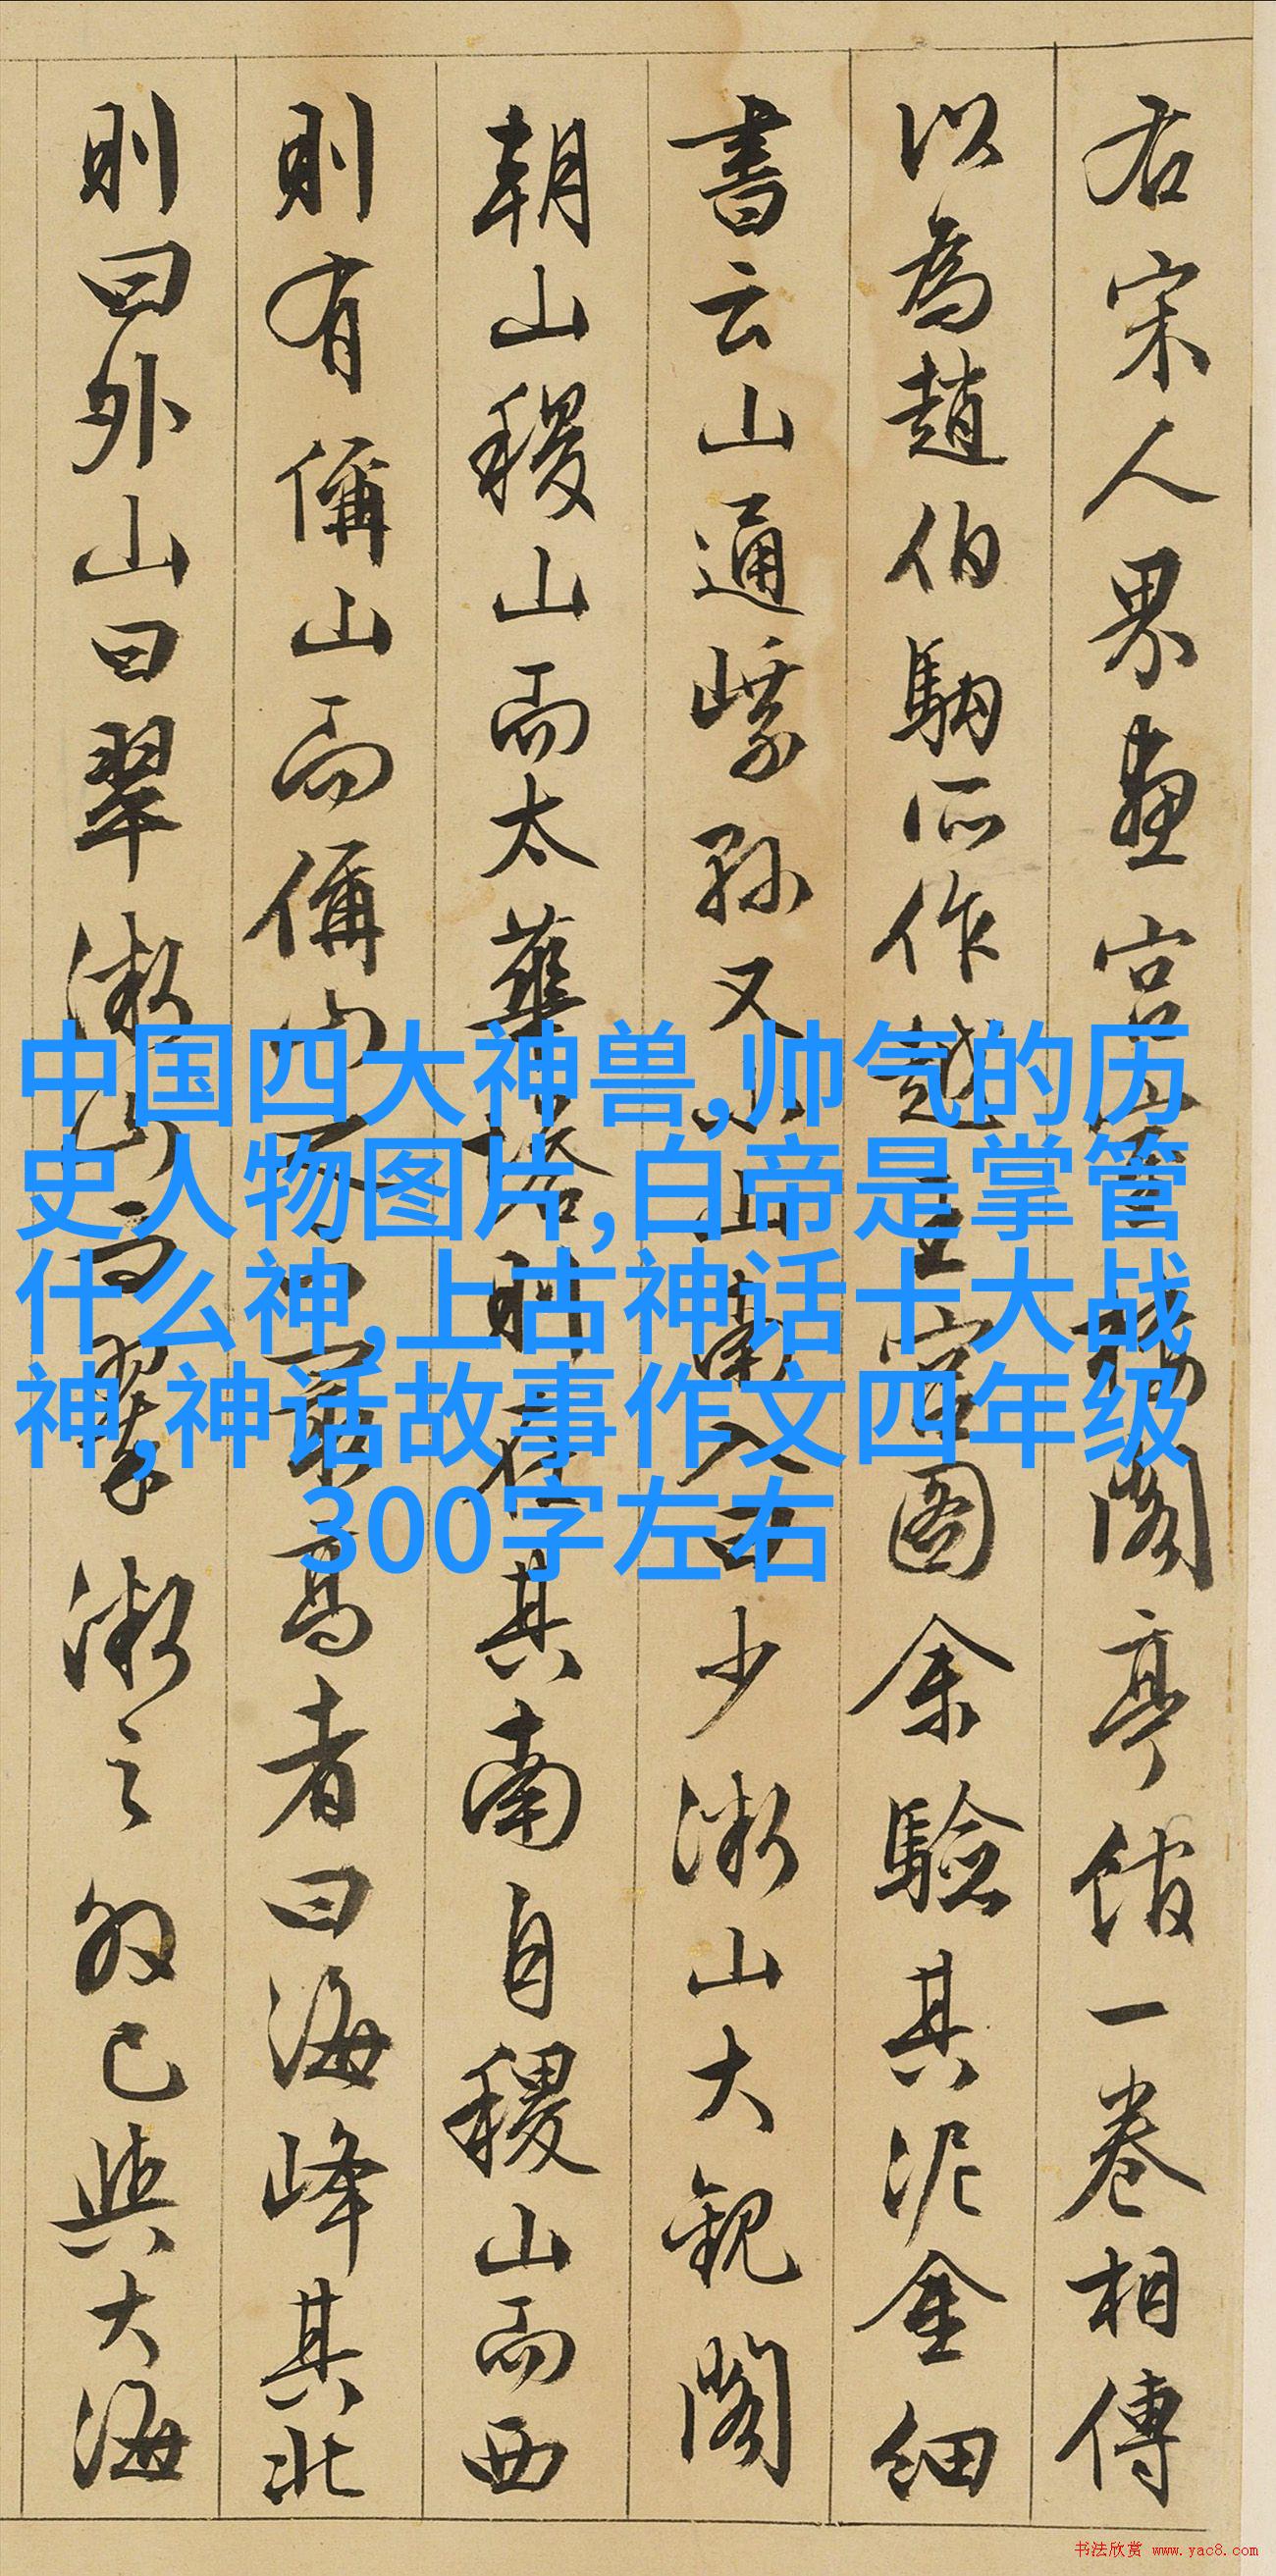 右宋人界畫宮室樓閣亭館一卷相傳
以為趙伯駒所作越王宮圖余驗其泥金細
書云山通嵊孫又小山南入曰少微山大觀閣
朝山稷山而太華塔則在其南自稷山而西
則有偁山而偁山最高者曰海峰其北
則曰外山曰翠微山而翠微之外已與大海
中国四大神兽,帅气的历
史人物图片,白帝是掌管
什么神,上古神话十大战
神,神话故事作文四年级
300字左右
书法欣赏 www.yac8.com